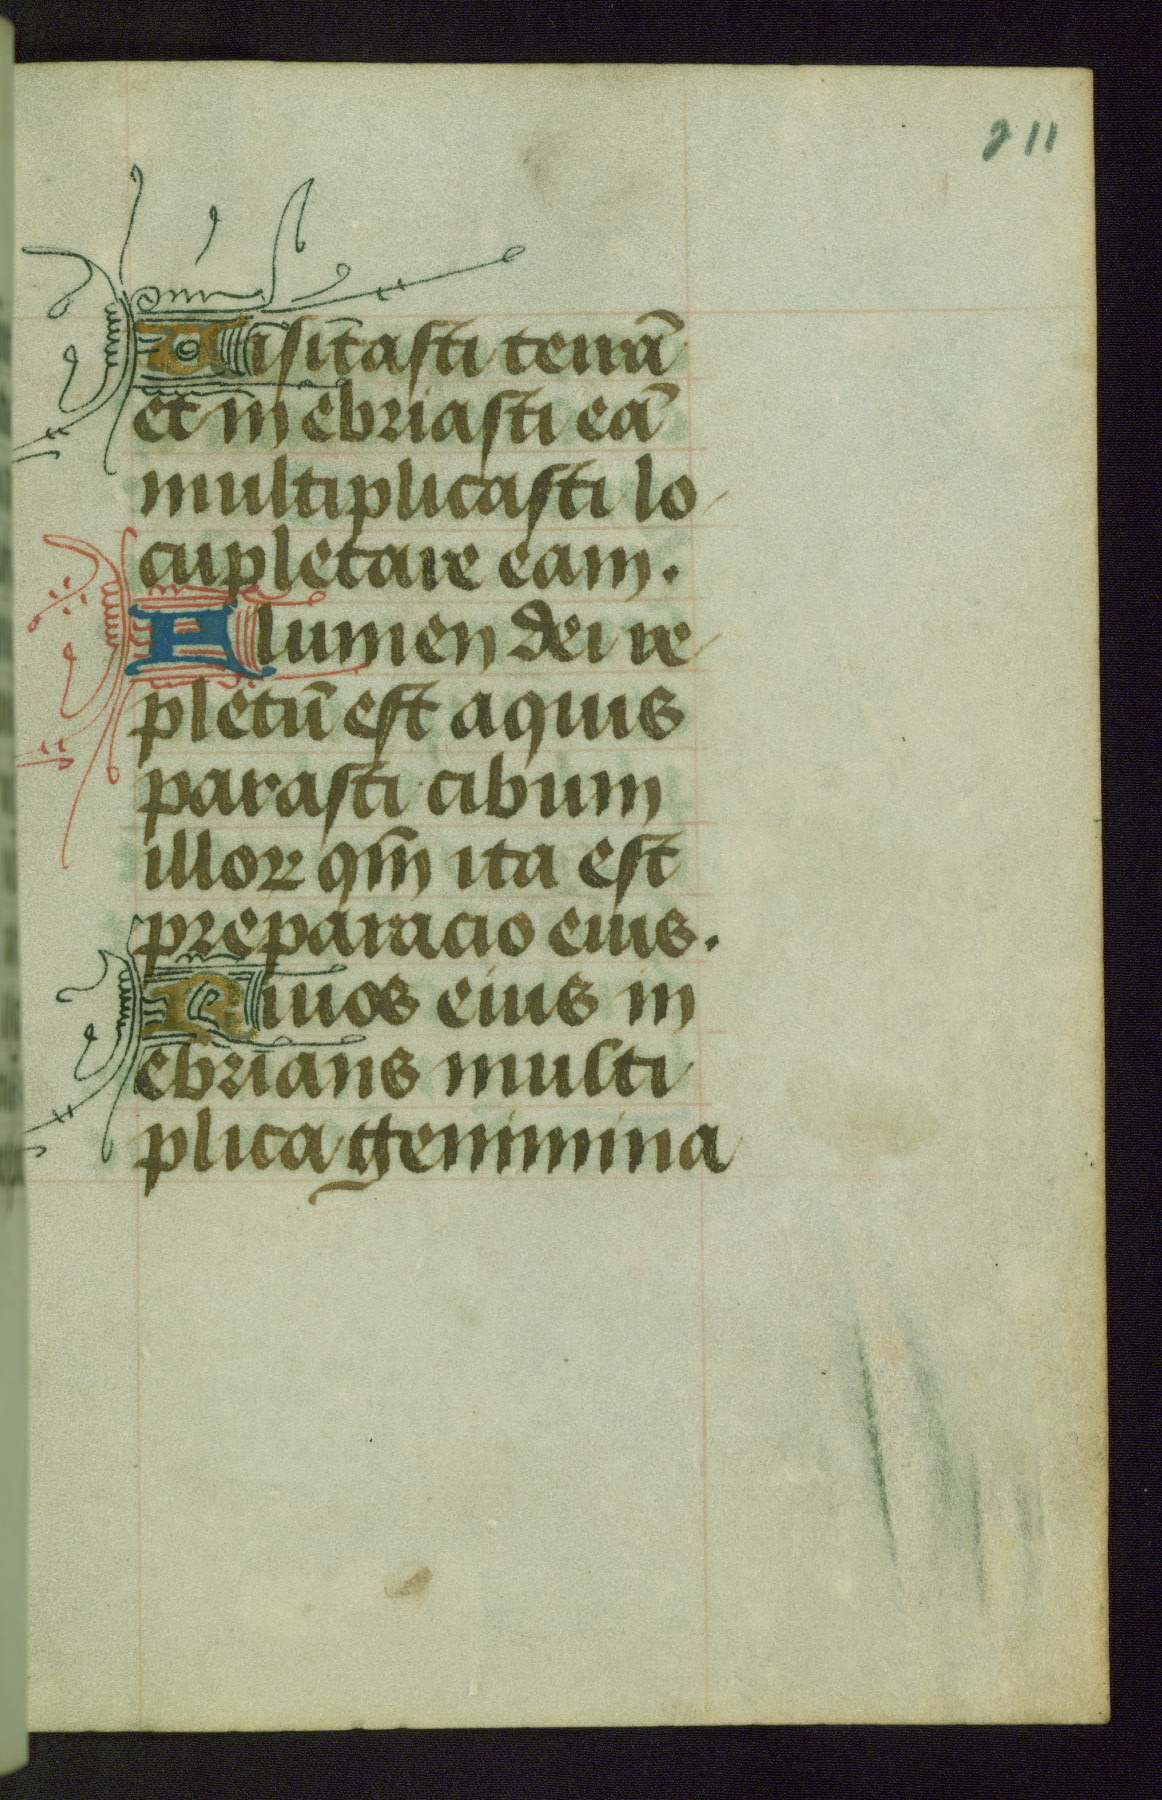 211
Visitasti terrā
et in ebriasti eā
multiplicasti lo
cupletare eam.
Flumen dei re
pletū est aquis
parasti cibum
illoꝝ qm̄ ita est
preparacio eius.
Riuos eius in
ebrians multi
plica genimina